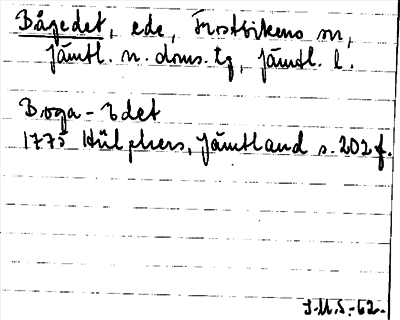 Bågedet, ede, Frostvikens sn,
Jämtl. n. doms. tg, Jämtl. l.
Boga-Edet
1775 Hülphers, Jämtland s. 202 f.
J.M.S.-62.